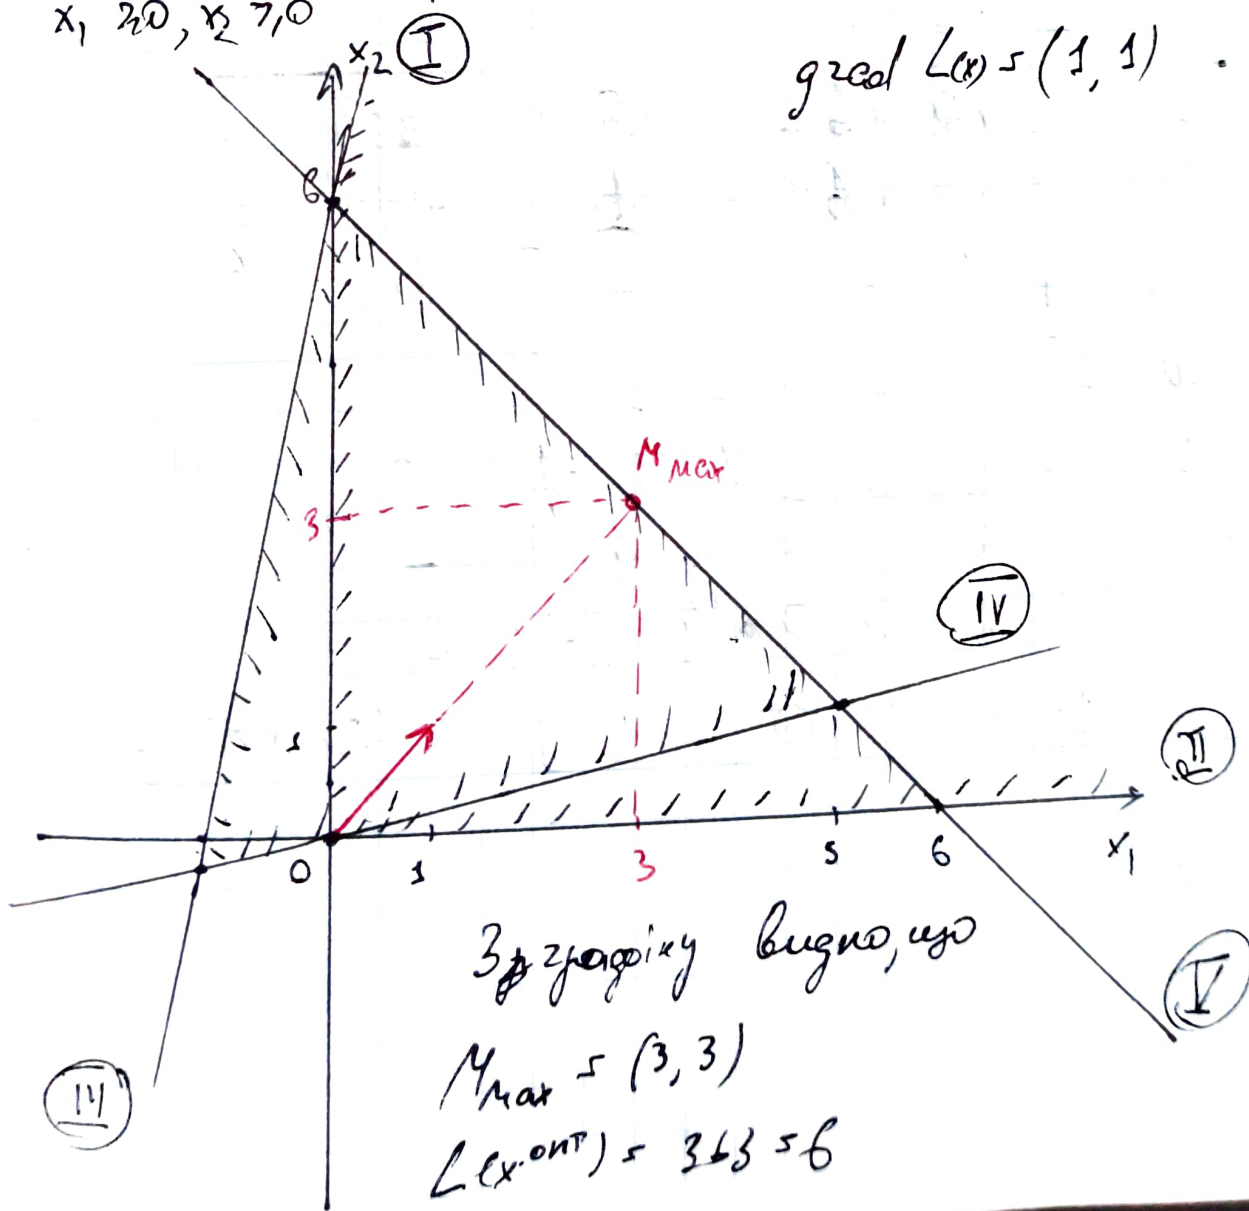 x₁ ≥ 0, x₂ ≥ 0
x₂
I
grad L(x) = (1, 1)
6
M max
3
IV
1
II
0
1
3
5
6
x₁
З графіку видно, що
V
M max = (3, 3)
III
L(x опт) = 3+3 = 6